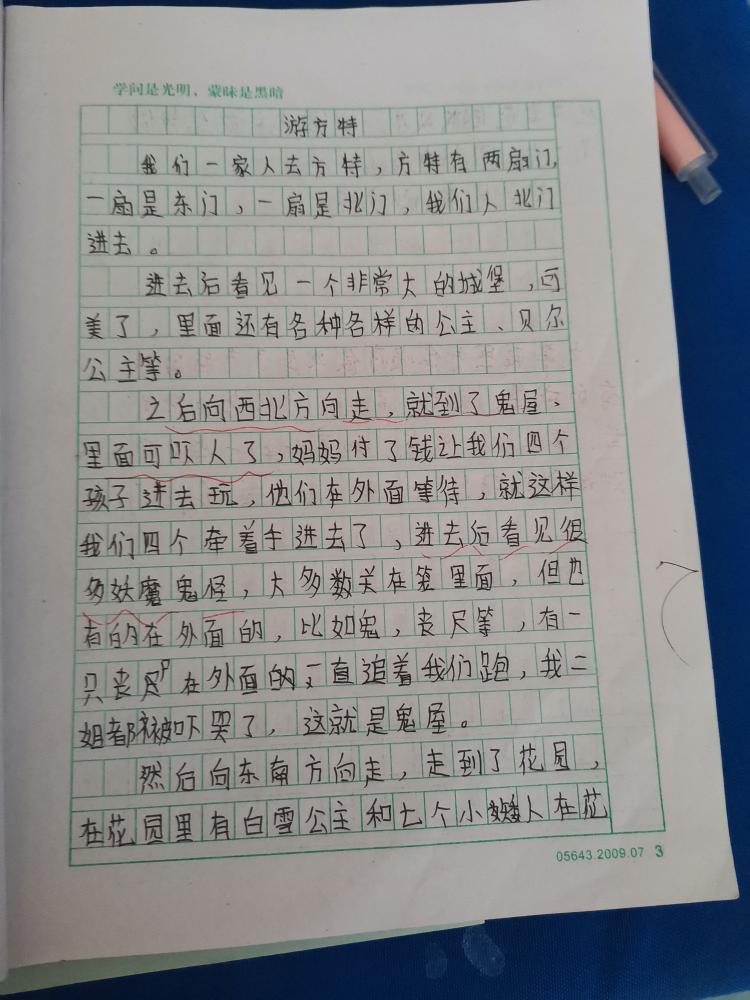 学问是光明、蒙昧是黑暗
游方特
我们一家人去方特，方特有两扇门，
一扇是东门，一扇是北门，我们人北门
进去。
进去后看见一个非常大的城堡，可
美了，里面还有各种各样的公主、贝尔
公主等。
之后向西北方向走，就到了鬼屋、
里面可吓人了，妈妈付了钱让我们四个
孩子进去玩，他们在外面等待，就这样
我们四个牵着手进去了，进去后看见很
多妖魔鬼怪，大多数关在笼里面，但也
有的在外面的，比如鬼，丧尺等，有一
只丧尸在外面的一直追着我们跑，我二
姐都被吓哭了，这就是鬼屋。
然后向东南方向走，走到了花园，
在花园里有白雪公主和七个小矮人在花
05643.2009.07 3